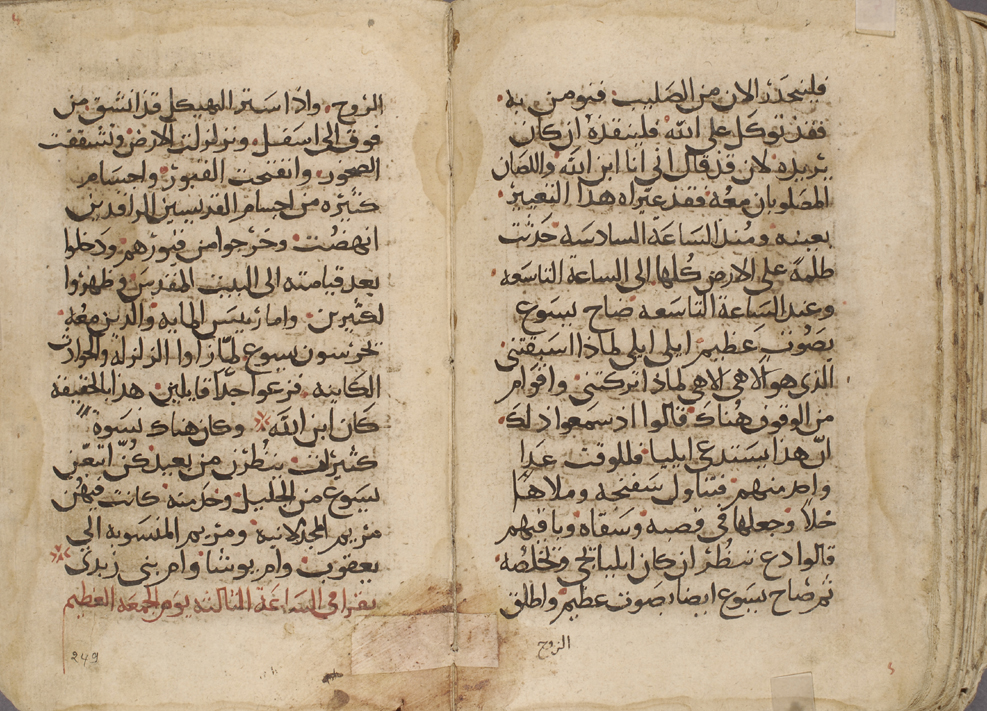 فلينحدر الان من الصليب فنومن به
فقد توكل على الله فلينقذه ان كان
يريده لانه قد قال اني انا ابن الله واللصان
المصلوبان معه فقد عيراه هذا التعيير
بعينه ومنذ الساعة السادسه حدثت
ظلمة على الارض كلها الى الساعة التاسعه
وعند الساعة التاسعه صاح يسوع
بصوت عظيم ايلي ايلي لماذا اسبقتني
الذي هو الاهي الاهي لماذا تركتني واقوام
من الوقوف هناك قالوا اذ سمعوا ذلك
ان هذا يستدعي ايليا فللوقت غدا
واحد منهم فتناول سفنجه وملاها
خلا وجعلها في قصبه وسقاه وباقيهم
قالوا دع ننظر ان كان ايليا يجي وتخلصه
ثم صاح يسوع ايضا بصوت عظيم واطلق
الروح
الروح واذا ستر الهيكل قد انشق من
فوق الى اسفل وتزلزلت الارض وتشققت
الصخور وانفتحت القبور واجسام
كثيره من اجسام القديسين الراقدين
انهضت وخرجوا من قبورهم ودخلوا
بعد قيامته الى البيت المقدس وظهروا
لكثيرين واما رييس المايه والذين معه
يحرسون يسوع لما راوا الزلزلة والحوادث
الكاينه فزعوا جدا قايلين هذا بالحقيقه
كان ابن الله وكان هناك نسوة
كثيرات ينظرن من بعيد كن اتبعن
يسوع من الجليل وخدمنه كانت فيهن
مريم المجدلانيه ومريم المنسوبه الى
يعقوب وام يوشا وام بني زبدى
يقرا في الساعة الثالثه يوم الجمعه العظيم
249